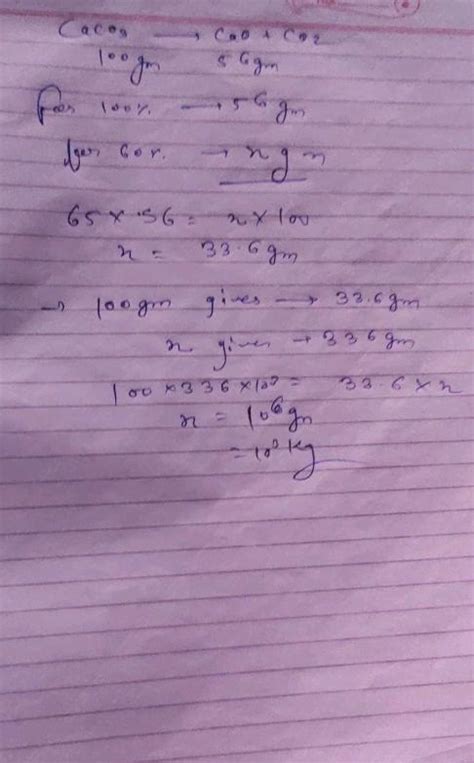 CaCO3 → CaO + CO2
100gm 56gm
for 100% → 56gm
for 60% → x gm
65 × 56 = x × 100
x = 33.6gm
→ 100gm gives → 33.6gm
x gives → 336gm
100 × 336 × 10³ = 33.6 × x
x = 10⁶gm
= 10³ kg